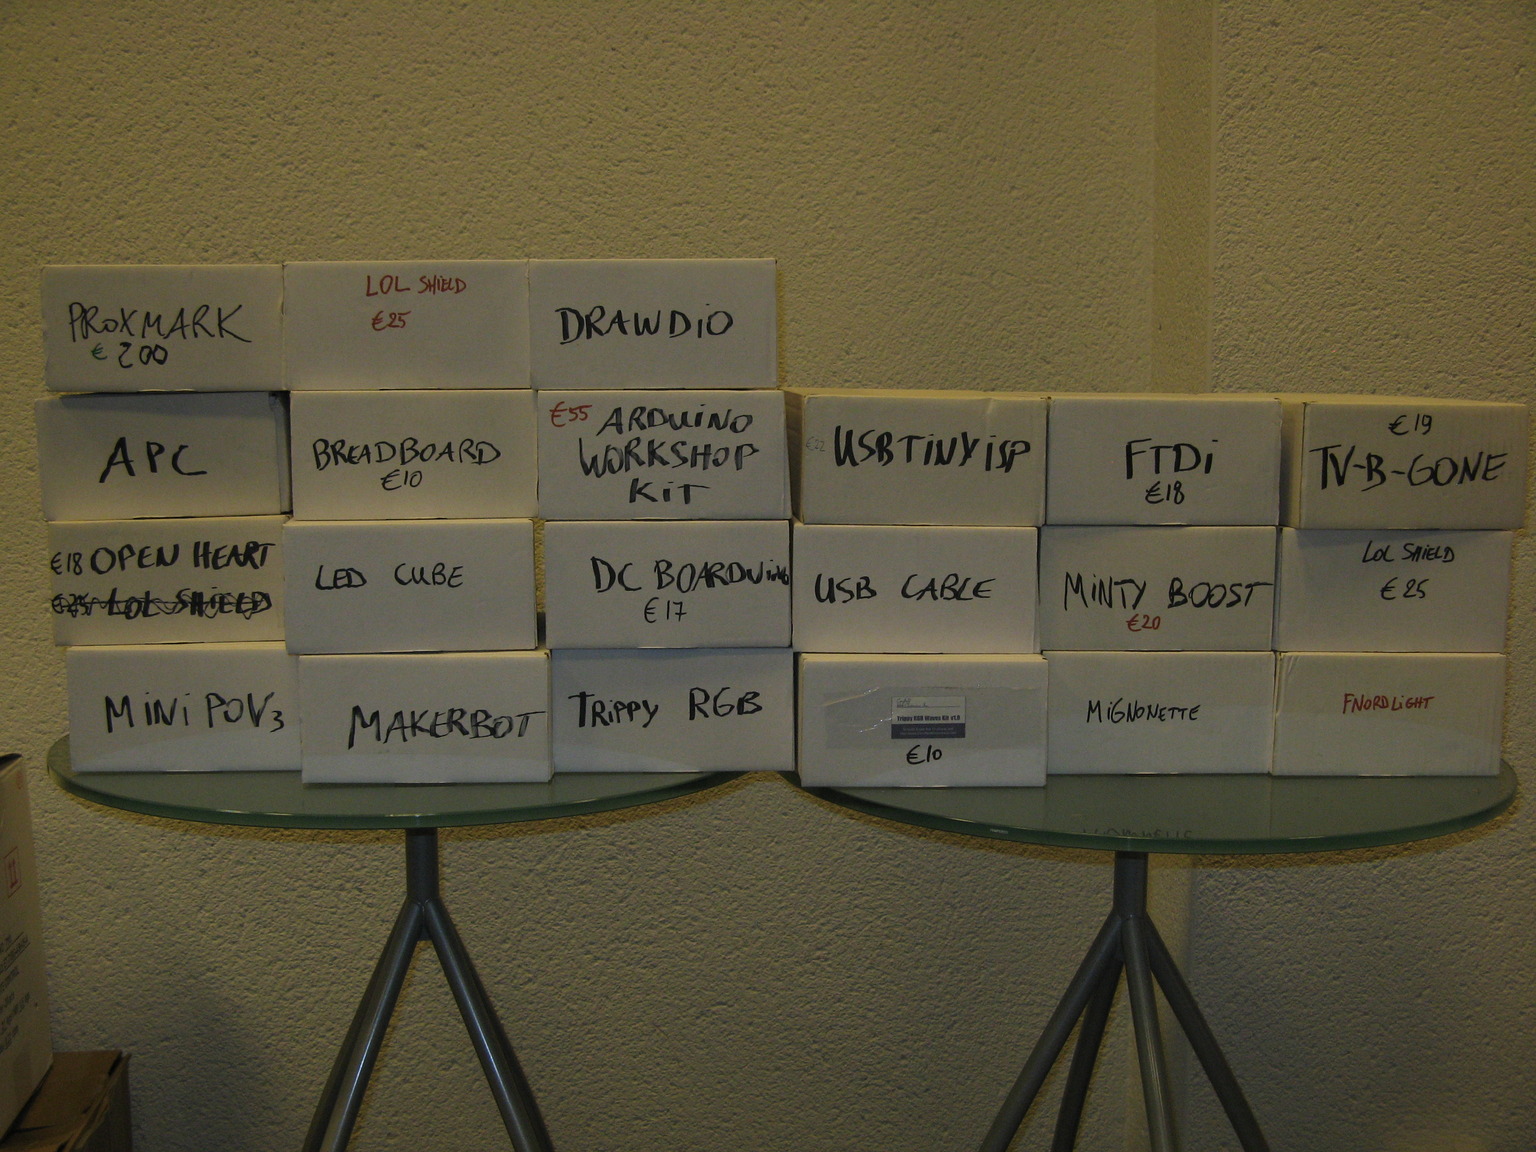 PROXMARK
€ 200
LOL SHIELD
€25
DRAWDIO
APC
BREADBOARD
€10
€55 ARDUINO
WORKSHOP
KIT
€22 USBTINYISP
FTDI
€18
€19
TV-B-GONE
€18 OPEN HEART
€25 LOL SHIELD
LED CUBE
DC BOARDUINO
€17
USB CABLE
MINTY BOOST
€20
LOL SHIELD
€25
MINI POV3
MAKERBOT
TRIPPY RGB
Trippy RGB Waves Kit v1.0
€10
MIGNONETTE
FNORDLIGHT